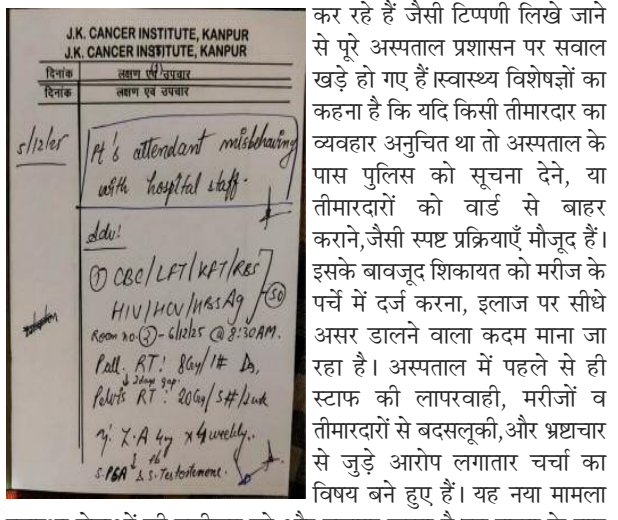 J.K. CANCER INSTITUTE, KANPUR
J.K. CANCER INSTITUTE, KANPUR
दिनांक लक्षण एवं उपचार
दिनांक लक्षण एवं उपचार
5/12/25
Pt's attendant misbehaving
with hospital staff.
Adv:
① CBC/LFT/KFT/RBS
HIV/HCV/HBsAg
50
Room no. ② - 6/12/25 @ 8:30AM.
Pall. RT: 8Gy/1#
↓ 2days gap.
Pelvis RT: 20Gy/5#/1wk
Inj. Z.A 4mg x 4 weekly.
S.PSA & S.Testosterone.
कर रहे हैं जैसी टिप्पणी लिखे जाने
से पूरे अस्पताल प्रशासन पर सवाल
खड़े हो गए हैं।स्वास्थ्य विशेषज्ञों का
कहना है कि यदि किसी तीमारदार का
व्यवहार अनुचित था तो अस्पताल के
पास पुलिस को सूचना देने, या
तीमारदारों को वार्ड से बाहर
कराने,जैसी स्पष्ट प्रक्रियाएँ मौजूद हैं।
इसके बावजूद शिकायत को मरीज के
पर्चे में दर्ज करना, इलाज पर सीधे
असर डालने वाला कदम माना जा
रहा है। अस्पताल में पहले से ही
स्टाफ की लापरवाही, मरीजों व
तीमारदारों से बदसलूकी,और भ्रष्टाचार
से जुड़े आरोप लगातार चर्चा का
विषय बने हुए हैं। यह नया मामला